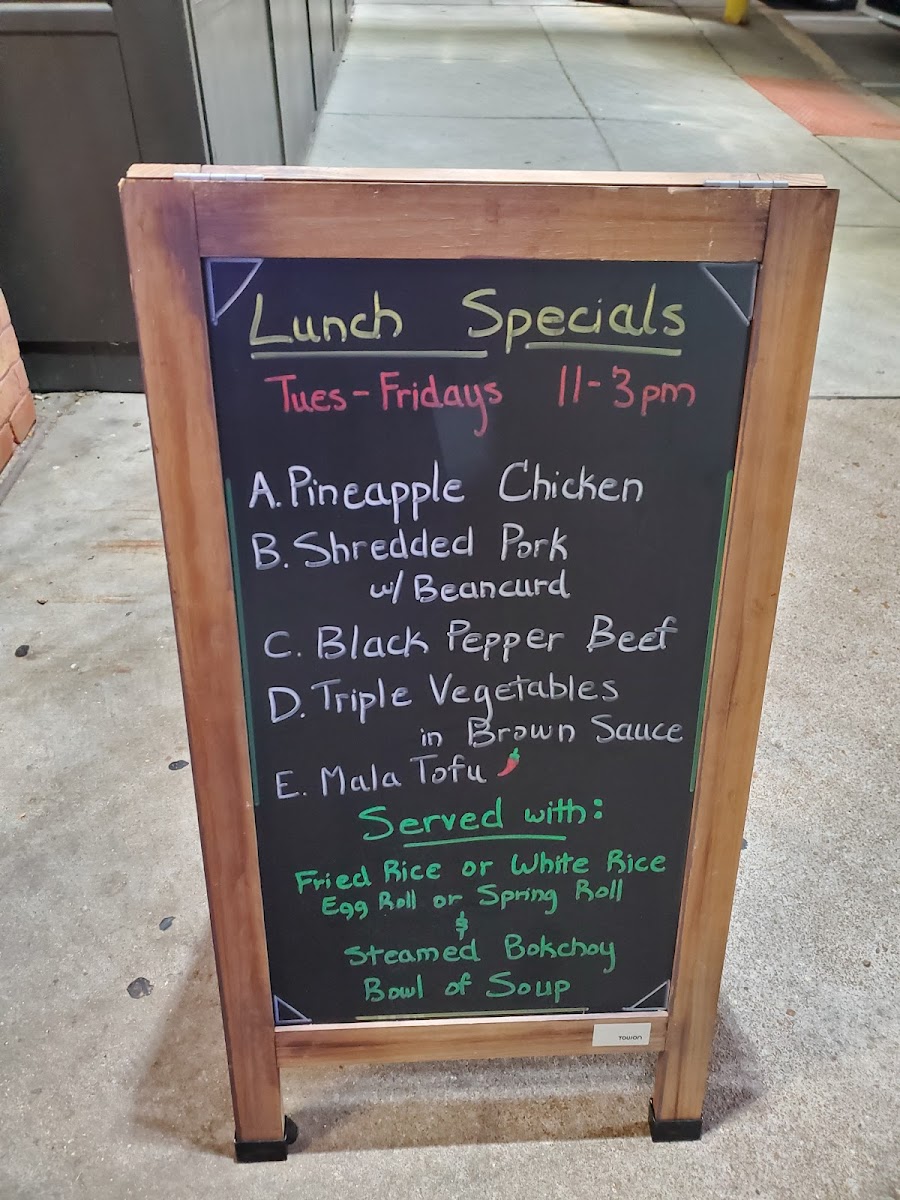 Lunch Specials
Tues-Fridays 11-3pm
A. Pineapple Chicken
B. Shredded Pork
w/ Beancurd
C. Black Pepper Beef
D. Triple Vegetables
in Brown Sauce
E. Mala Tofu
Served with:
Fried Rice or White Rice
Egg Roll or Spring Roll
&
Steamed Bokchoy
Bowl of Soup
TOWON